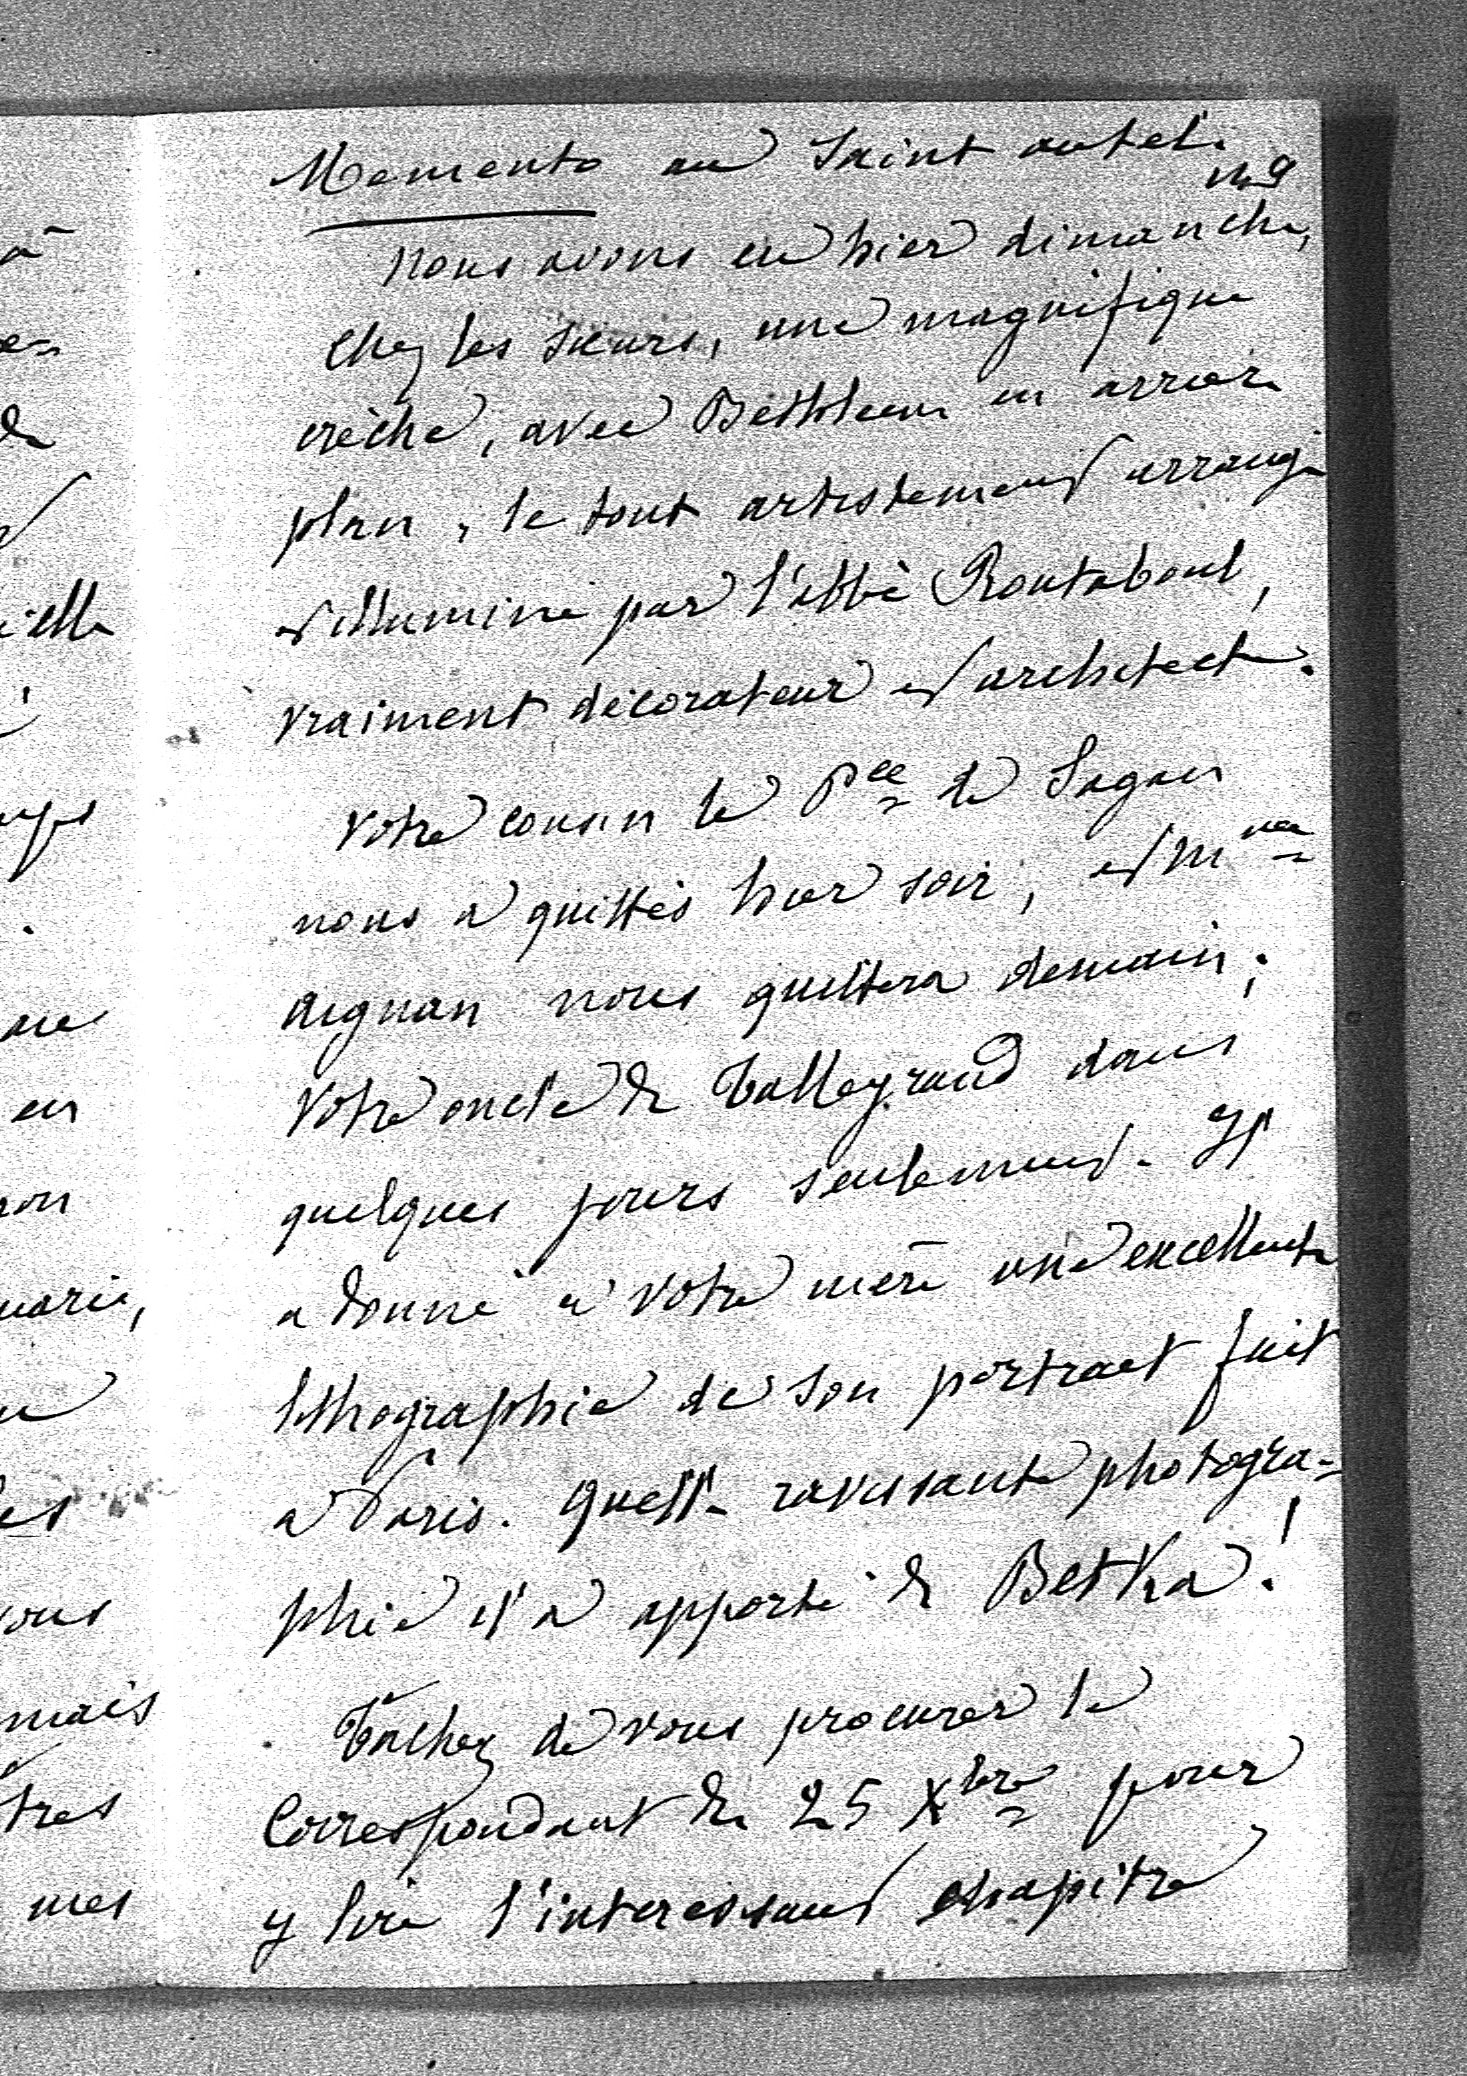 Memento au Saint autel.
Nous avons eu hier dimanche,
chez les Sœurs, une magnifique
crèche, avec Béthléem en arrière
plan, le tout artistement arrangé
et illuminé par l'abbé Routaboul,
vraiment décorateur et architecte.
Votre cousin le Pce de Sagan
nous a quittés hier soir, et Mme
Aignan nous quittera demain;
Votre oncle de Talleyrand dans
quelques jours seulement. Il
a donné à votre mère une excellente
lithographie de son portrait fait
à Paris. Quelle ravissante photogra-
phie il a apporté de Betka!
Tâchez de vous procurer le
Correspondant du 25 Xbre pour
y lire l'interessant chapitre
à
de
elle
en
non
marie,
vous
mais
tres
mes